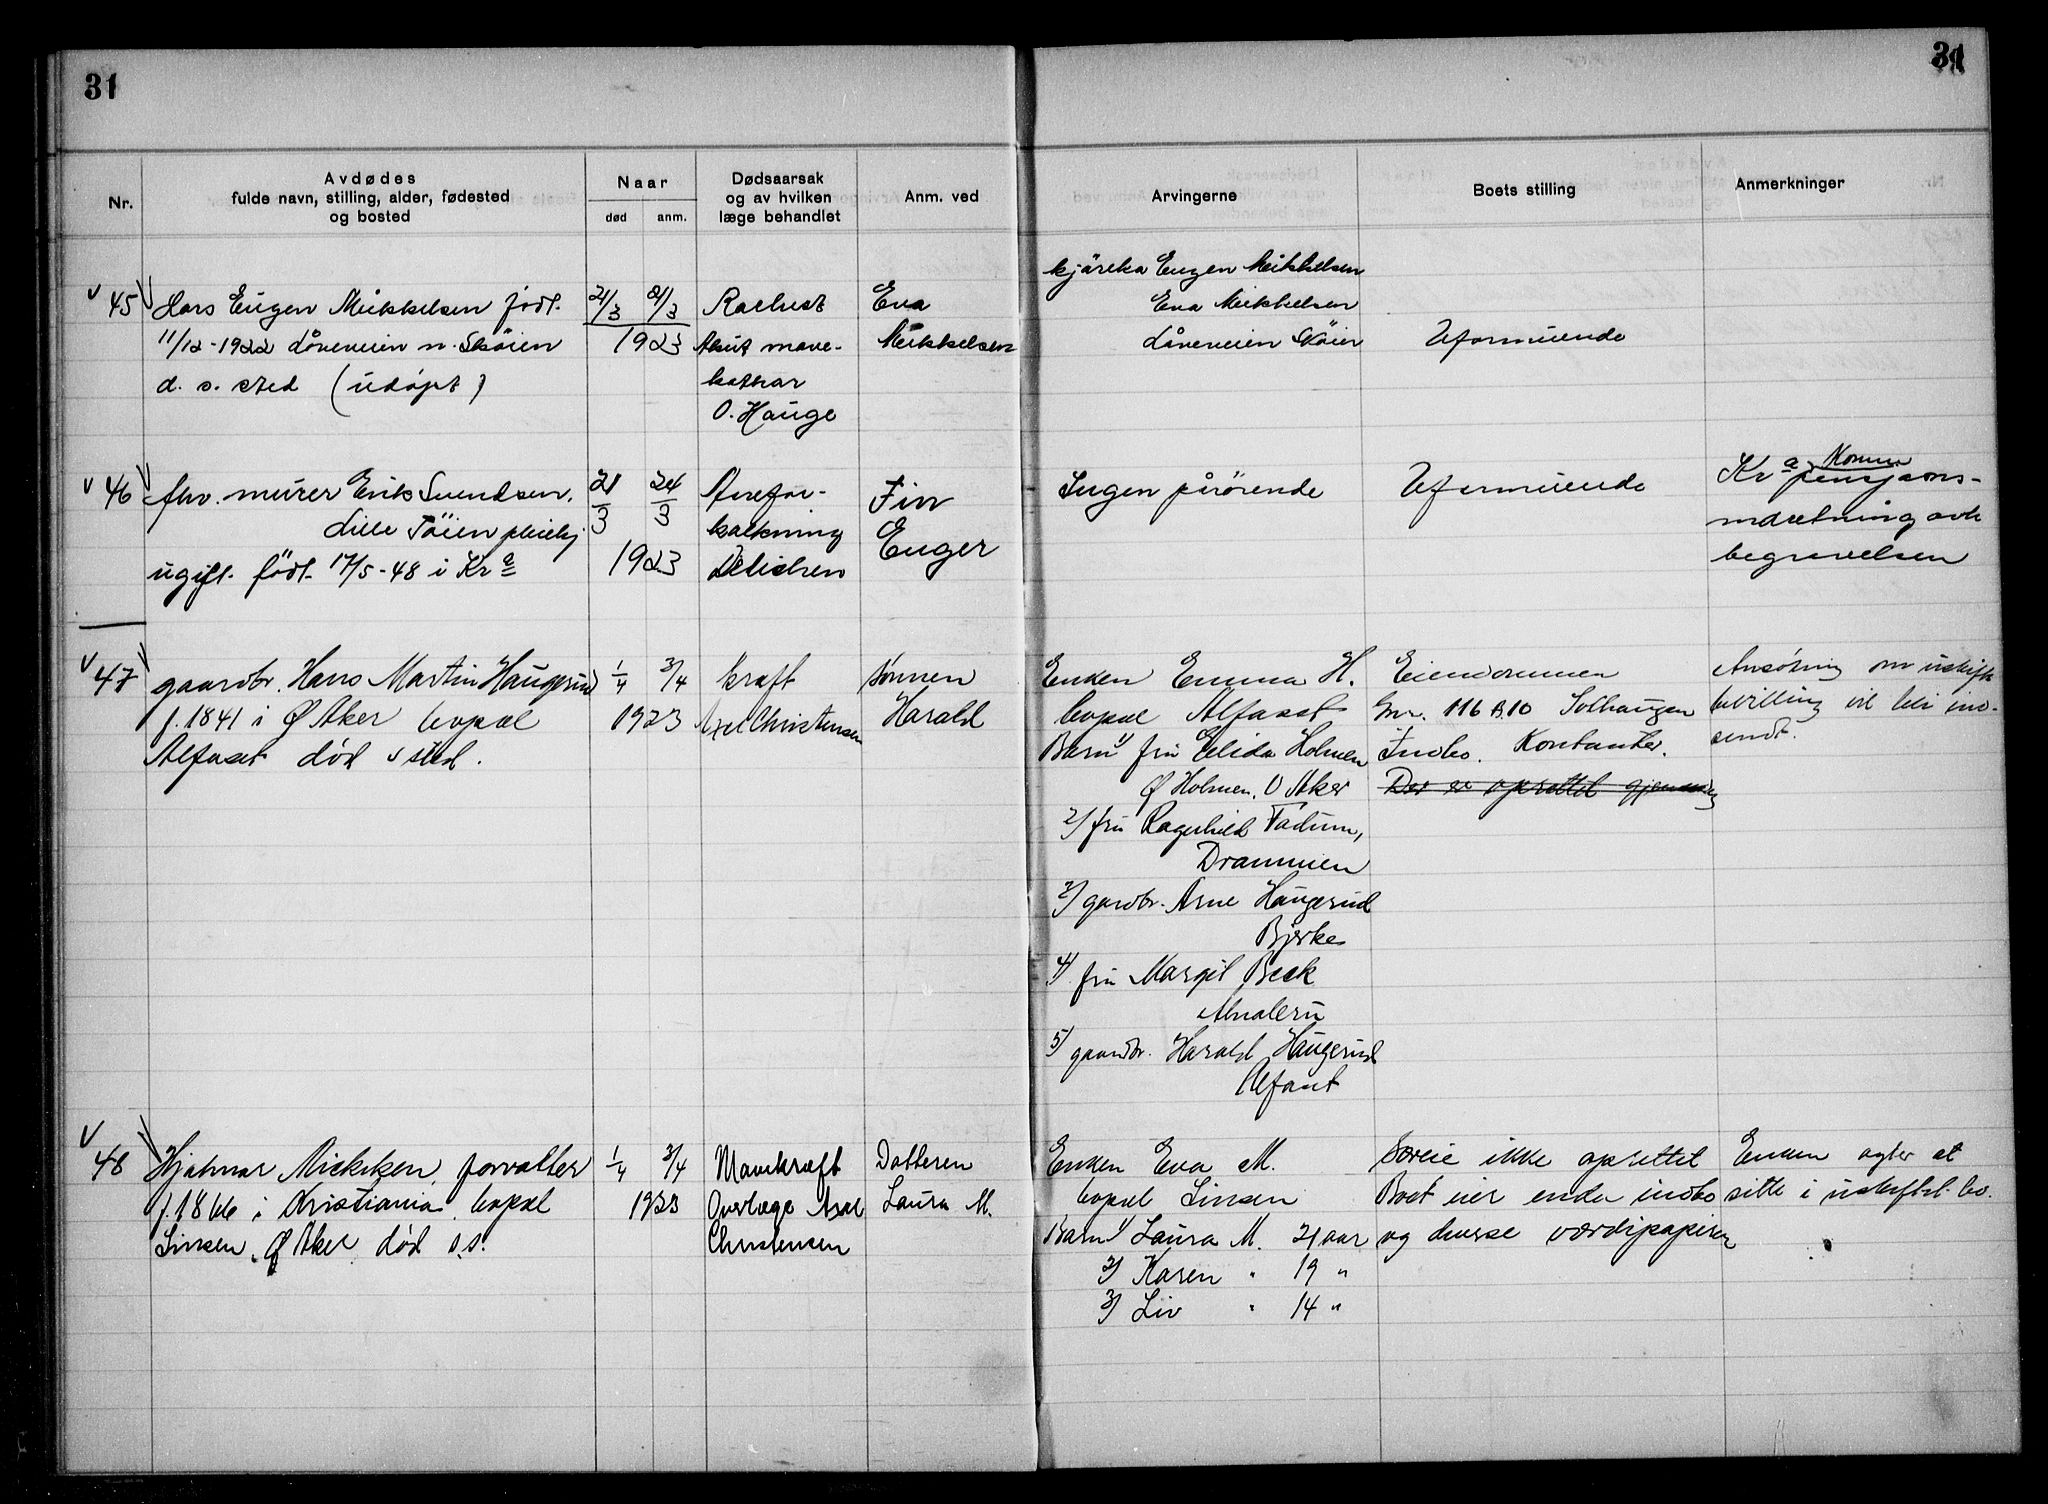 31
31
Nr.
Avdødes
fulde navn, stilling, alder, fødested
og bosted
Naar
død
anm.
Dødsaarsak
og av hvilken
læge behandlet
Anm. ved
Arvingerne
Boets stilling
Anmerkninger
45 Lars Eugen Mikkelsen født.
11/12-1922 Løveveien n. Skøien
d. s. sted (udøpt)
21/3 21/3
1923
Akut mave-
kathar
O. Hauge
Eva
Mikkelsen
Eugen Mikkelsen
Eva Mikkelsen
Løveveien Skøien
Uformuende
46 fhv. murer Erik Svendsen,
Lille Tøien pleiehj
ugift. født 17/5-48 i Kra
21/3 24/3
1923
Arefor-
kalkning
Fin
Enger
Ingen pårørende
Uformuende
Kra Komm
pensjons-
indretning
begravelsen
47 gaardbr. Hans Martin Haugerud
f. 1841 i Ø Aker bopæl
Alfaset død s sted.
1/4 3/4
1923
kræft
Axel Christensen
sønnen
Harald
Enken Emma H.
bopæl Alfaset
Barn 1) fru Elida Holmen
Ø Holmen, Ø Aker
2) fru Ragnhild Fadum,
Drammen
3) gaardbr. Arne Haugerud
Bjerke
4) fru Margit Beck
Alnabru
5) gaardbr. Harald Haugerud
Alfaset
Eiendommen
Gnr. 116 B. 10 Solhaugen
Indbo. Kontanter.
Der er oprettet
Ansøkning om uskifte
bevilling vil bli ind-
sendt.
48 Hjalmar Mickelsen, forvalter
f. 1866 i Kristiania bopæl
Linsen, Ø Aker død s.s.
1/4 3/4
1923
Mavekræft
Overlæge Axel
Christensen
Datteren
Laura M.
Enken Eva M.
bopæl Linsen
Barn 1) Laura M. 21 aar
2) Karen " 19 "
3) Liv " 14 "
Særeie ikke oprettet
Boet eier endel indbo
og diverse værdipapirer
Enken agter at
sitte i uskiftet bo.